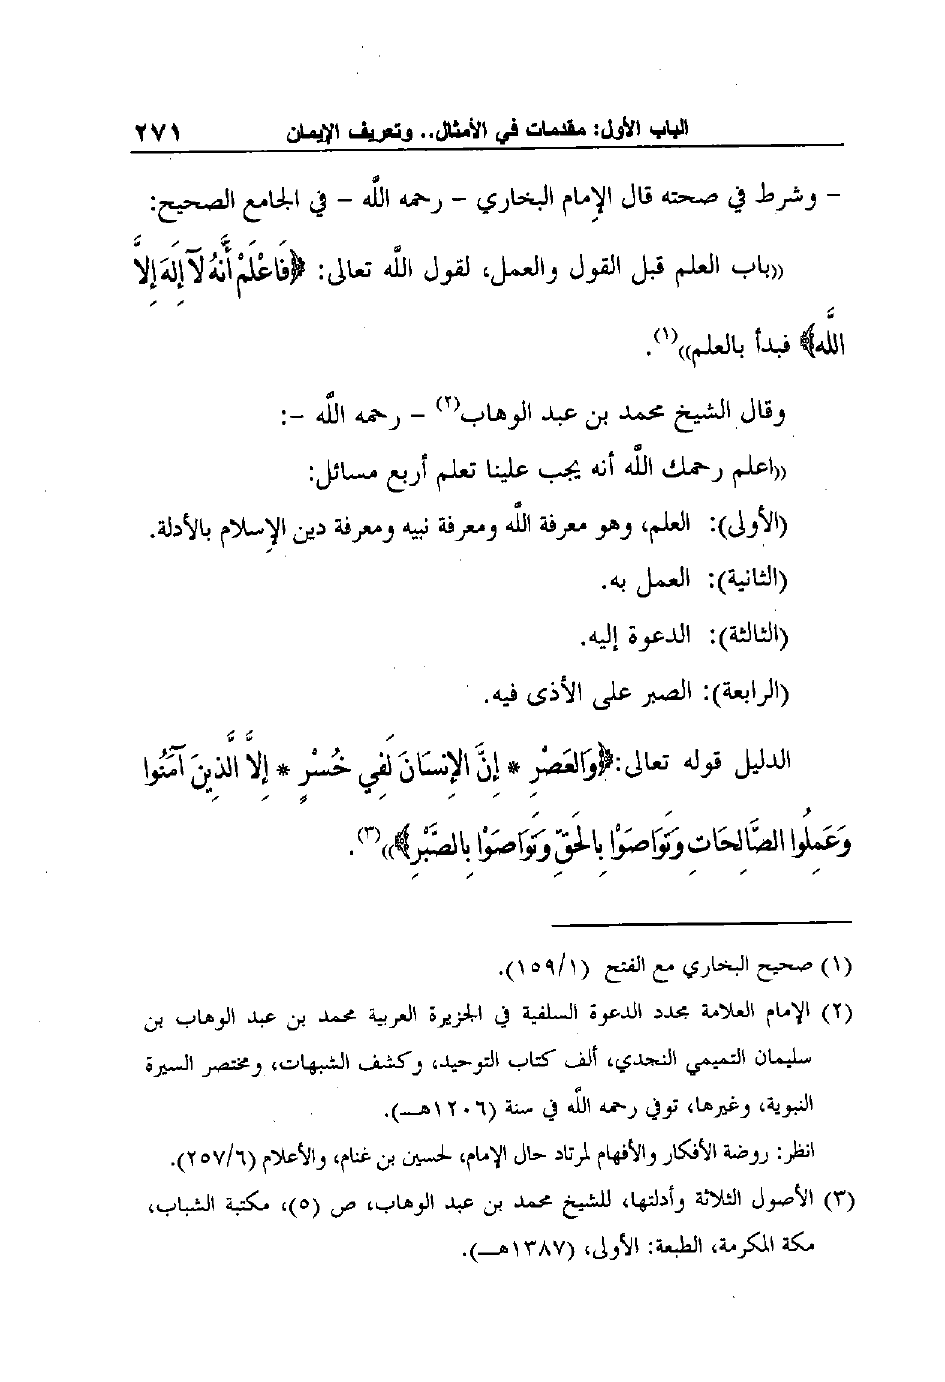 الباب الأول: مقدمات في الأمثال.. وتعريف الإيمان ٢٧١
– وشرط في صحته قال الإمام البخاري – رحمه الله – في الجامع الصحيح:
((باب العلم قبل القول والعمل، لقول الله تعالى: ﴿فَاعْلَمْ أَنَّهُ لَآ إِلَهَ إِلاَّ
اللَّه﴾ فبدأ بالعلم))(١).
وقال الشيخ محمد بن عبد الوهاب(٢) – رحمه الله –:
((اعلم رحمك الله أنه يجب علينا تعلم أربع مسائل:
(الأولى): العلم، وهو معرفة الله ومعرفة نبيه ومعرفة دين الإسلام بالأدلة.
(الثانية): العمل به.
(الثالثة): الدعوة إليه.
(الرابعة): الصبر على الأذى فيه.
الدليل قوله تعالى: ﴿وَالعَصْرِ * إِنَّ الإِنسَانَ لَفِي خُسْرٍ * إِلاَّ الَّذِينَ آمَنُوا
وَعَمِلُوا الصَّالِحَاتِ وَتَوَاصَوْا بِالحَقِّ وَتَوَاصَوْا بِالصَّبْرِ﴾))(٣).
(١) صحيح البخاري مع الفتح (١/١٥٩).
(٢) الإمام العلامة مجدد الدعوة السلفية في الجزيرة العربية محمد بن عبد الوهاب بن
سليمان التميمي النجدي، ألف كتاب التوحيد، وكشف الشبهات، ومختصر السيرة
النبوية، وغيرها، توفي رحمه الله في سنة (١٢٠٦هـ).
انظر: روضة الأفكار والأفهام لمرتاد حال الإمام، لحسين بن غنام، والأعلام (٦/٢٥٧).
(٣) الأصول الثلاثة وأدلتها، للشيخ محمد بن عبد الوهاب، ص (٥)، مكتبة الشباب،
مكة المكرمة، الطبعة: الأولى، (١٣٨٧هـ).